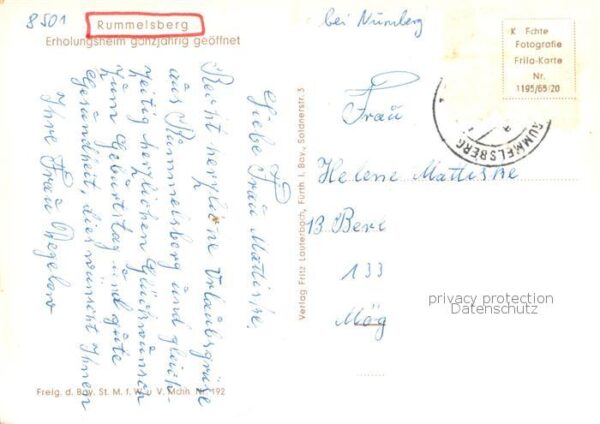 8501
Rummelsberg
Erholungsheim ganzjährig geöffnet
bei Nürnberg
K Echte
Fotografie
Frila-Karte
Nr.
1195/65/20
RUMMELSBERG
Liebe Frau Mattiske.
Recht herzliche Urlaubsgrüße
aus Rummelsberg und gleich-
zeitig herzlichen Glückwunsch
zum Geburtstag und gute
Gesundheit, dies wünscht Ihnen
Ihre Frau Wegelow
Verlag Fritz Lauterbach, Fürth i. Bay., Soldnerstr. 5
Frau
Helene Mattiske
13 Berl
133
Mög
privacy protection
Datenschutz
Freig. d. Bay. St. M. f. W. u. V. Mchn. Nr. 192